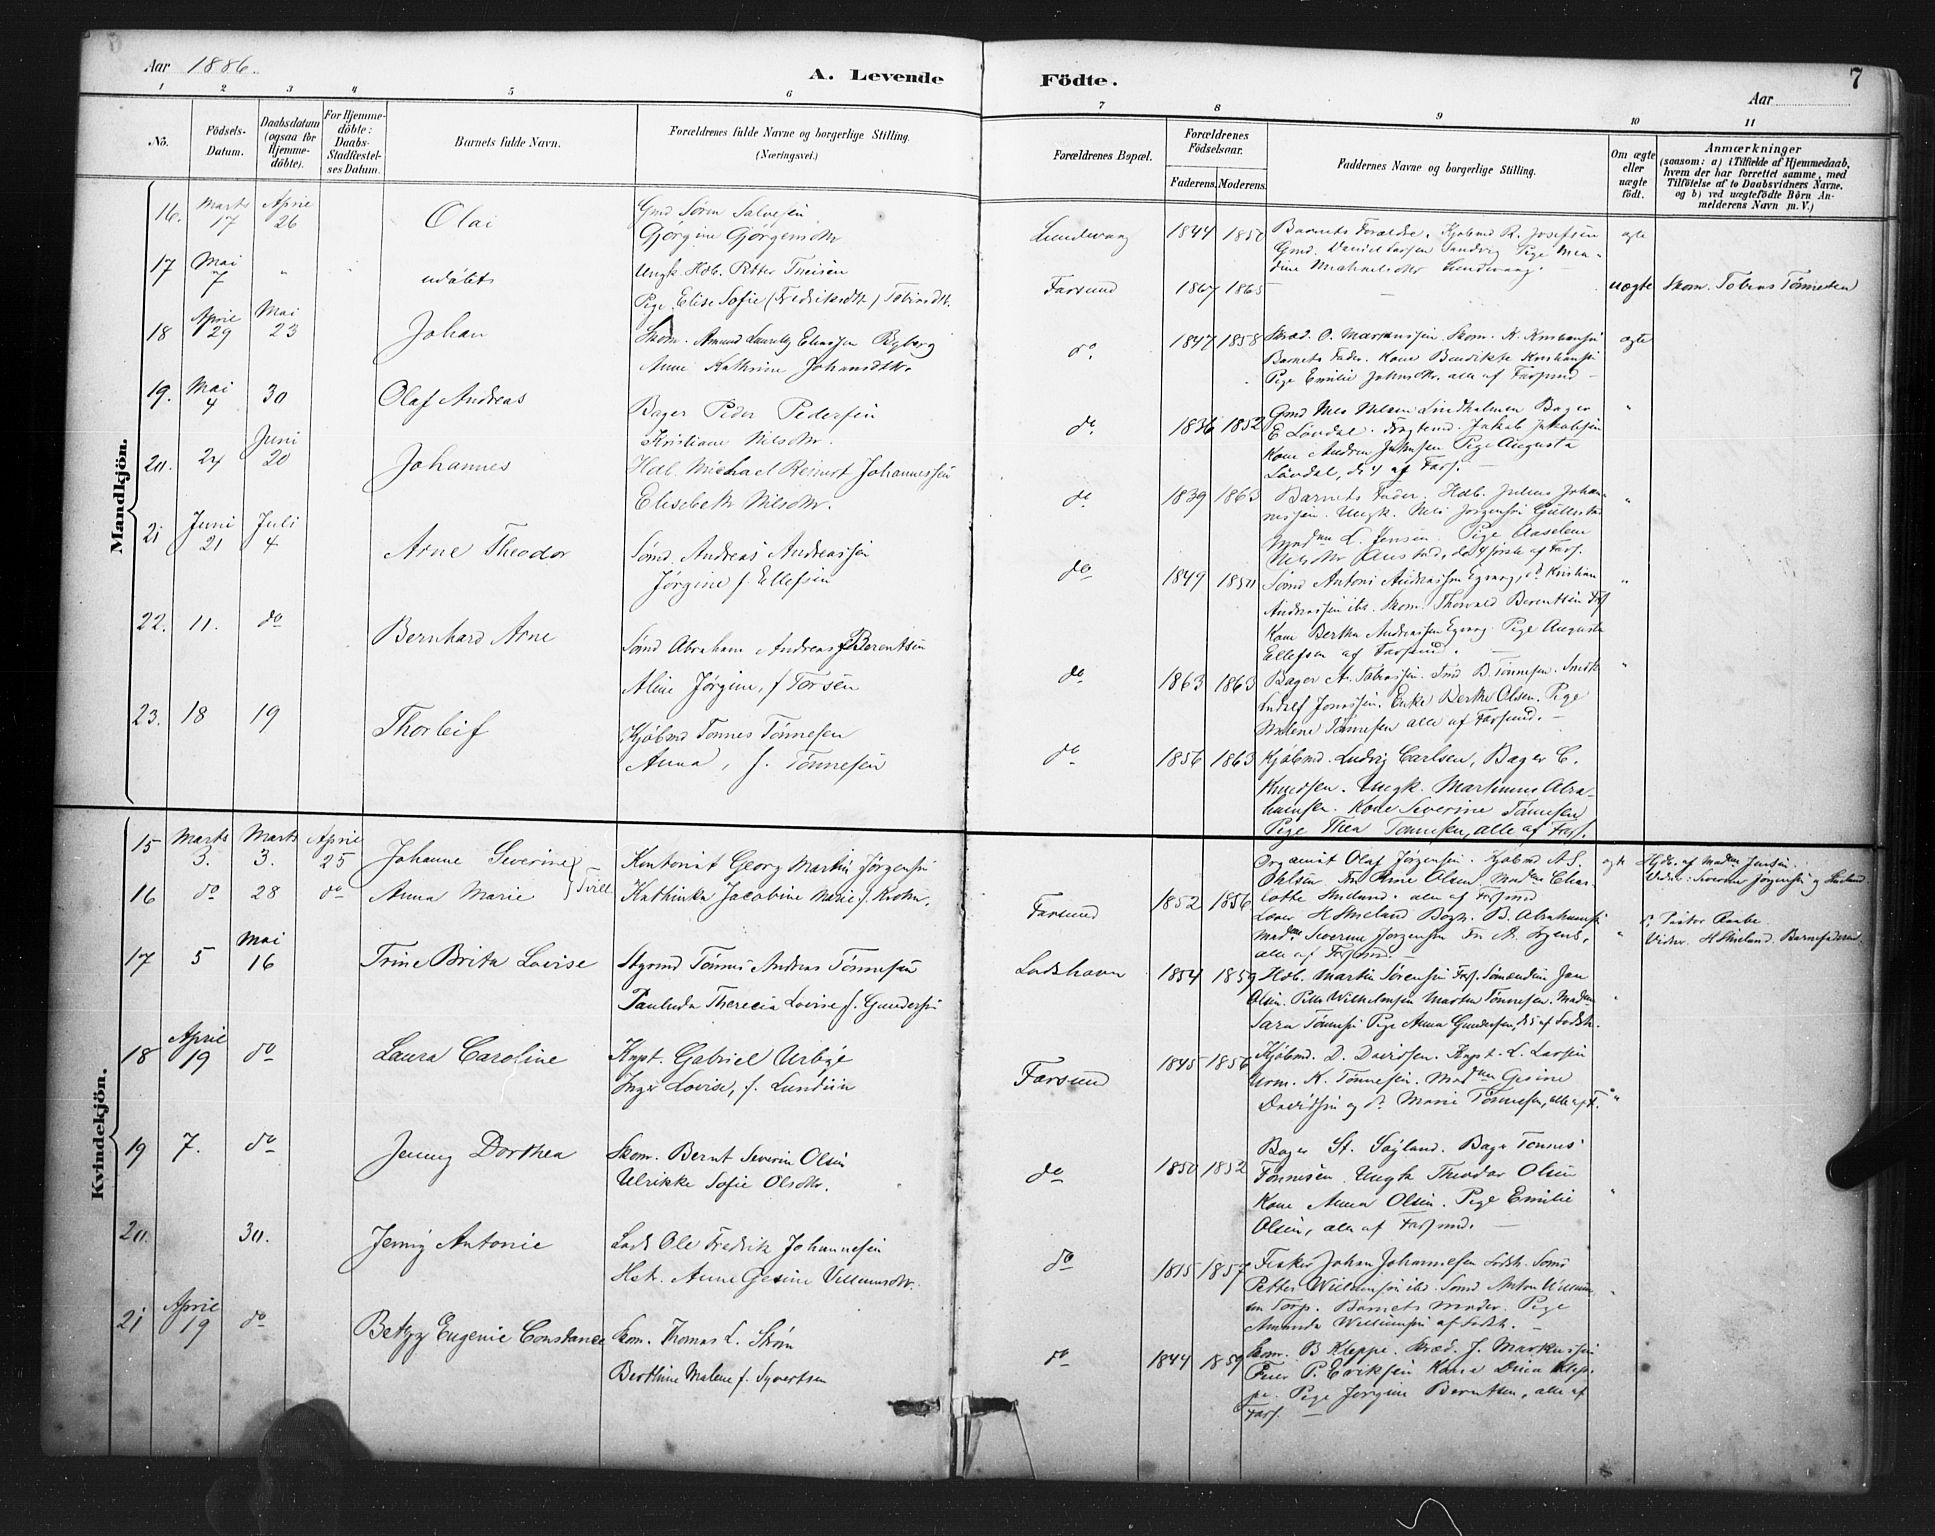 Aar 1886.
A. Levende
Födte.
7
Aar
1 2 3 4 5 6 7 8 9 10 11
No.
Födsels-
Datum.
Daabsdatum
(ogsaa for
Hjemme-
döbte).
For Hjemme-
döbte:
Daabs-
Stadfæstel-
ses Datum.
Barnets fulde Navn.
Forældrenes fulde Navne og borgerlige Stilling.
(Næringsvei.)
Forældrenes Bopæl.
Forældrenes
Födselsaar.
Faderens. Moderens.
Faddernes Navne og borgerlige Stilling.
Om ægte
eller
uægte
födt.
Anmærkninger
(saasom: a) i Tilfælde af Hjemmedaab,
hvem der har forrettet samme, med
Tilföielse af to Daabsvidners Navne.
og b) ved uægtefödte Börn An-
melderens Navn m. V.)
Mandkjön.
16. Marts 17 April 26
Olai
Gmd Søren Salvesen
Gjorgine Gjörgensdtr
Lundevaag
1844 1850
Barnets Forældre. Kjøbmd R. Josefsen
Gmd. Daniel Larsen Sandvig Pige
Michaelsdtr Lundevaag.
ægte
17 Mai 7 "
udöbt
Ungk. Hdb. Petter Theisen
Pige Elise Sofie (Fredriksdtr) Tobiasdtr.
Farsund
1867 1865
uægte
Skom. Tobias Tönnesen
18 April 29 Mai 23
Johan
Skom. Amund Lauritz Eliassen Ryberg
Anne Kathrine Johansdttr.
do.
1847 1858
Skræd. O. Markussen. Skom. K. Kristiansen
Barnets Fader. Kone Bendikte Kristiansen
Pige Emilie Johnsdtr. alle af Farsund
ægte
19. Mai 4 30
Olaf Andreas
Bager Peder Pedersen
Kristiane Nilsdtr.
do.
1836 1852
Gmd Nils Nilsen Lindholmen Bager
E Løvdal. Jakob Jakobsen
Kone Andrea Pige Augusta
Løvdal, de 4 af Fars.
"
20. 24 Juni 20
Johannes
Hdb. Michael Reinert Johannessen
Elisebeth Nilsdtr.
do
1839 1863
Barnets Fader. Hdb. Julius Johan-
nessen. Ungk. Nils Jørgensen
L. Jensen. Pige
Nilsdtr de 4 første af Fars.
"
21 Juni 21 Juli 4
Arne Theodor
Sømd. Andreas Andreassen
Jørgine f. Ellefsen
do
1849 1850
Sømd Antoni Andreassen Egvaag, do Kristian
Andreassen ibd. Skom. Thorvald Berentsen Fars
Kone Bertha Andreassen Egvaag. Pige Augusta
Ellefsen af Farsund.
"
22. 11. do
Bernhard Arne
Sømd Abraham Andreas Berentsen
Aline Jørgine, f Torsen
do
1863 1863
Bager A. Tobiassen. Smd B. Tønnesen. Smed
Jonassen. Enke Berthe Olsen. Pige
Malene Tønnesen alle af Farsund.
"
23. 18 19
Thorleif
Kjøbmd Tønnes Tönnesen
Anna, f. Tönnesen
do
1856 1863
Kjøbmd. Ludvig Carlsen, Bager C.
Knudsen. Ungk. Martinius Abra-
hamsen. Kone Severine Tønnesen
Pige Thea Tönnesen, alle af Fars.
Kvindekjön.
15 Marts 3. Marts 3. April 25
Johanne Severine } Tvill
Kontorist Georg Martin Jørgensen
16 do 28 do
Anna Marie
Kathinka Jacobine Marie f. Krohn.
Farsund
1852 1856
Organist Olaf Jørgensen. Kjøbmd A. S.
Ohlsen. Fru Olsen. Madme Char-
lotte alle af Farsund
H Stieland B. Abrahamsen
Madme. Severine Jørgensen Fr A.
alle af Farsund.
ægte
"
Hjdb. af Madm Jensen.
Vidner: Severine Jørgensen og Stieland
do Pastor Raabe.
Vidner. H Stieland. Barnefaderen
17 5 Mai 16
Trine Brita Lovise
Styrmd Tönnes Andreas Tönnesen
Paulinda Therecia Lovise f. Gundersen
Lodshavn
1854 1859
Hdb. Martin Sørensen Fars. Sømændene Jan
Olsen. Pete Wilhelmsen Martin Tønnesen. Madm
Sara Tønnesen Pige Anna Gundersen, de 5 af Lodsh.
"
18 April 19 do
Laura Caroline
Kapt. Gabriel Urbye
Inger Lovise, f. Lundein
Farsund
1845 1856
Kjøbmd. D. Davidsen. Kapt. L. Larsen
Urm. K. Tønnesen. Madmme Gesine
Davidsen og do Marie Tønnesen, alle af F.
"
19 7. do
Jenny Dorthea
Skom. Bernt Severin Olsen
Ulrikke Sofie Olsdtr.
do
1850 1852
Bager St. Sagland. Bager Tønnes
Tønnesen. Ungk Theodor Olsen
Kone Anna Olsen. Pige Emilie
Olsen, alle af Farsund.
"
20. 30.
Jenny Antonie
Lods Ole Fredrik Johannesen
Hst. Anne Gesine Villumsdtr.
do
1815 1857
Fisker Johan Johannesen Lodsh. Sømd
Petter Williumsen ibd. Sømd Anton Willum-
sen Barnets Moder. Pige
Amanda Williumsen af Lodsh.
"
21 April 19 do
Betzy Eugenie Constance
Skom. Thomas L. Strøm
Berthine Malene f. Syvertsen
do
1844 1859
Skom. B Kleppe. Skræd. J. Markussen
Feier P. Eriksen Kone Dina Klep-
pe. Pige Jørgine Berntsen, alle af
Fars.